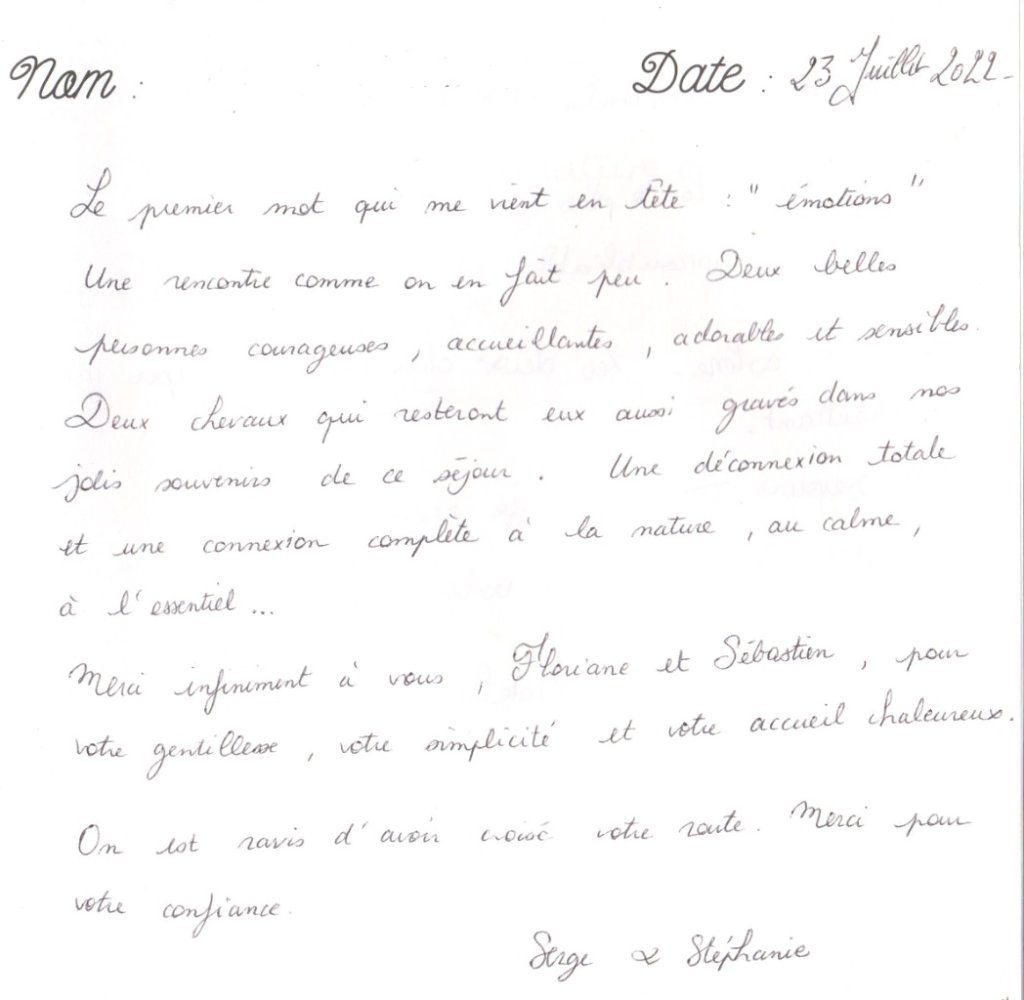 Nom :
Date : 23 Juillet 2022 -
Le premier mot qui me vient en tête : " émotions "
Une rencontre comme on en fait peu . Deux belles
personnes courageuses , accueillantes , adorables et sensibles.
Deux chevaux qui resteront eux aussi gravés dans nos
jolis souvenirs de ce séjour . Une déconnexion totale
et une connexion complète à la nature , au calme ,
à l'essentiel ...
Merci infiniment à vous , Floriane et Sébastien , pour
votre gentillesse , votre simplicité et votre accueil chaleureux .
On est ravis d'avoir croisé votre route . Merci pour
votre confiance .
Serge & Stéphanie